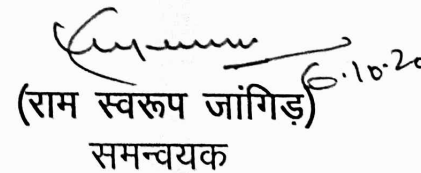 6.10.20
(राम स्वरूप जांगिड़)
समन्वयक